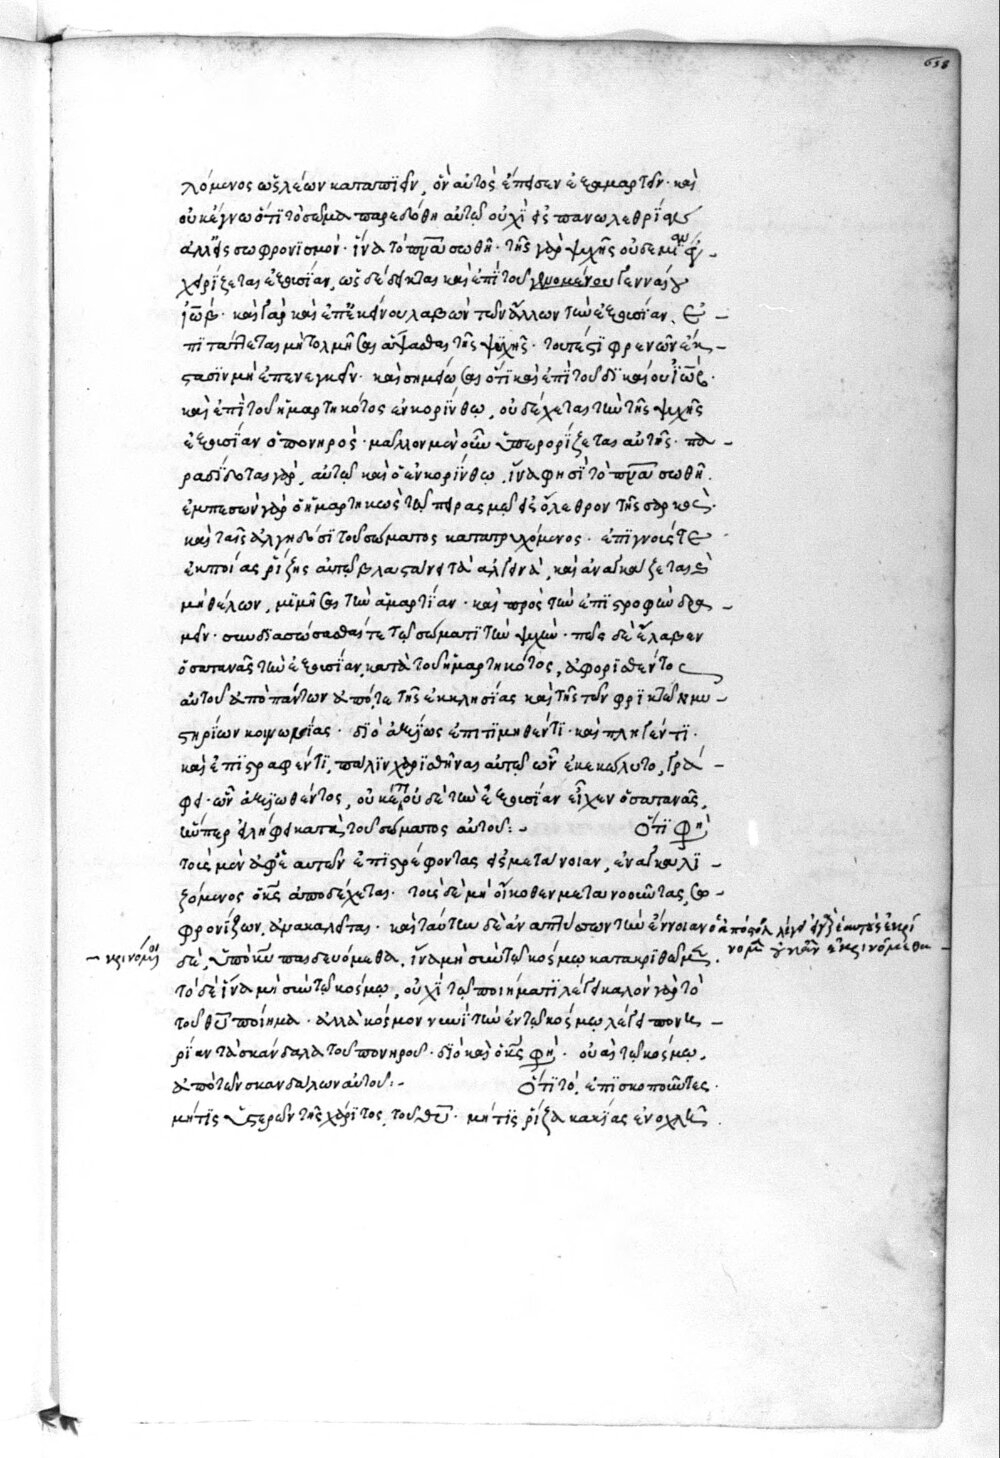 638
λόμενος ὡς λέων καταπιεῖν, ὃν αὐτὸς ἔπεισεν ἐξαμαρτεῖν· καὶ
οὐκ ἔγνω ὅτι τὸ σῶμα παρεδόθη αὐτῷ οὐχὶ εἰς πανωλεθρίαν
ἀλλ' εἰς σωφρονισμόν· ἵνα τὸ πνᾶ σωθῆ· τῆς γὰρ ψυχῆς οὐδεμίαν
χαρίζεται ἐξουσίαν, ὡς δέδεικται καὶ ἐπὶ τοῦ γενναίου
ἰώβ· καὶ γὰρ καὶ ἐπ' ἐκείνου λαβὼν τῶν ἄλλων τὴν ἐξουσίαν, ἐ
πιτάττεται μὴ τολμῆσαι ἅψασθαι τῆς ψυχῆς· τουτέστι φρενῶν ἔκ
στασιν μὴ ἐπενεγκεῖν· καὶ σημείωσαι ὅτι καὶ ἐπὶ τοῦ δικαίου ἰώβ·
καὶ ἐπὶ τοῦ ἡμαρτηκότος ἐν κορίνθω, οὐ δέχεται τὴν τῆς ψυχῆς
ἐξουσίαν ὁ πονηρός· μᾶλλον μὲν οὖν ὑπερορίζεται αὐτῆς· πα
ραδίδοται γὰρ, αὐτῷ καὶ ὁ ἐν κορίνθω, ἵνα φησὶ τὸ πνᾶ σωθῆ.
ἐμπεσὼν γὰρ ὁ ἡμαρτηκὼς τῷ πειρασμῷ εἰς ὄλεθρον τῆς σαρκὸς·
καὶ ταῖς ἀλγηδόσι τοῦ σώματος κατατρυχόμενος· ἐπιγνοίς τε
ἐκ ποίας ῥίζης αὐτῷ βλαστάνει τὰ ἀλγεινὰ, καὶ ἀναγκάζεται
μὴ θέλων, μισῆσαι τὴν ἁμαρτίαν· καὶ πρὸς τὴν ἐπιστροφὴν δρα
μεῖν· συνδιασώσασθαί τε τῷ σώματι τὴν ψυχήν· πῶς δὲ ἔλαβεν
ὁ σατανᾶς τὴν ἐξουσίαν, κατὰ τοῦ ἡμαρτηκότος, ἀφορισθέντος
αὐτοῦ ἀπὸ πάντων ἀπό, τε τῆς ἐκκλησίας καὶ τῆς τῶν φρικτῶν μυ
στηρίων κοινωνίας· διὸ ἀξίως ἐπιτιμηθέντι· καὶ πληγέντι·
καὶ ἐπιστραφέντι, πάλιν χαρισθῆναι αὐτῷ ὧν ἐκεκώλυτο, γρά
φει· ὧν ἀξιωθέντος, οὐκέτι οὐδὲ τὴν ἐξουσίαν εἶχεν ὁ σατανᾶς,
ἥνπερ εἴληφε κατὰ τοῦ σώματος αὐτοῦ:- Ὅτι φη
τοὺς μὲν ἀφ' ἑαυτῶν ἐπιστρέφοντας εἰς μετάνοιαν, ἐναγκαλι
ζόμενος ὁ κς ἀποδέχεται· τοὺς δὲ μὴ οἴκοθεν μετανοοῦντας, σω
φρονίζων, ἀνακαλεῖται· καὶ ταύτην δὲ ἀναπτύσσων τὴν ἔννοιαν ὁ ἀπόστολ λέγει εἰ γὰρ ἑαυτοὺς ἐκρί
νομεν οὐκ ἂν ἐκρινόμεθα
κρινόμενοι
δὲ, ὑπὸ κυ παιδευόμεθα, ἵνα μὴ σὺν τῷ κόσμω κατακριθῶμεν.
τὸ δὲ ἵνα μὴ σὺν τῷ κόσμω, οὐχὶ τῷ ποιήματι λέγει καλὸν γὰρ τὸ
τοῦ θυ ποίημα· ἀλλὰ κόσμον νυνὶ τὴν ἐν τῷ κόσμω λέγει πονη
ρίαν τὰ σκάνδαλα τοῦ πονηροῦ· διὸ καὶ ὁ κς φη· οὐαὶ τῷ κόσμω,
ἀπὸ τῶν σκανδάλων αὐτοῦ:- Ὅτι τὸ, ἐπισκοποῦντες·
μή τις ὑστερῶν τῆς χάριτος, τοῦ θυ· μή τις ῥίζα κακίας ἐνοχλῆ.